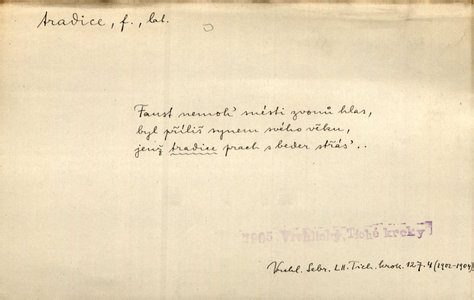 tradice, f., lat.
Faust nemoh' snésti zvonů hlas,
byl příliš synem svého věku,
jenž tradice prach s beder střás' ..
1905. Vrchlický, Tiché kroky
Vrchl. Sebr. LII. Tich. krok. 127. 4 (1902-1904)